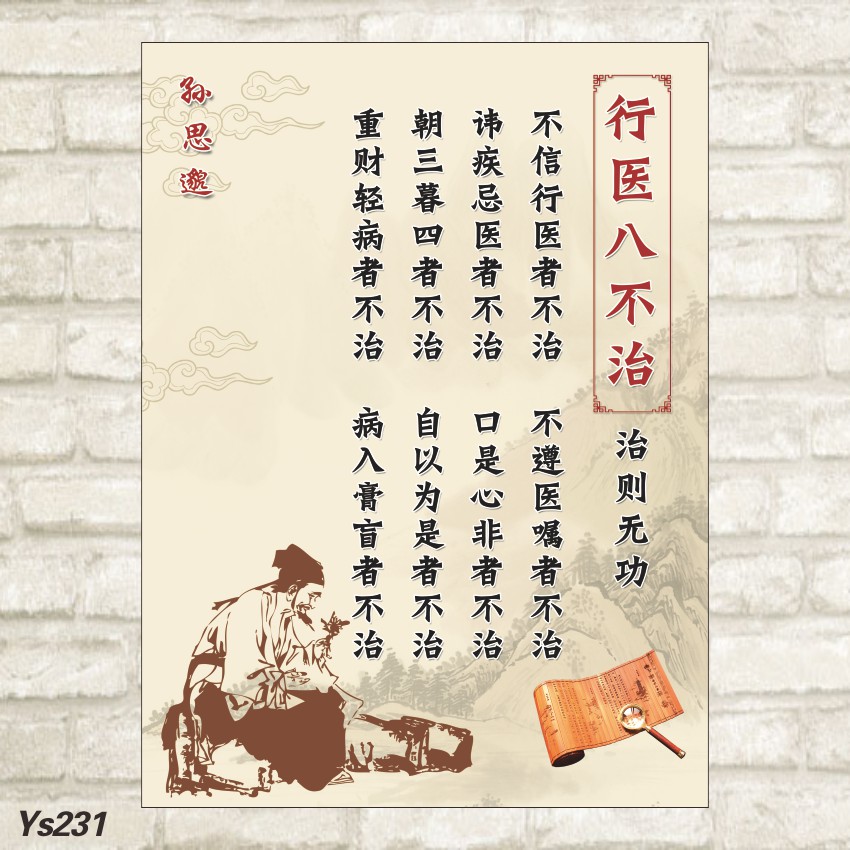 行医八不治
治则无功
不信行医者不治
不遵医嘱者不治
讳疾忌医者不治
口是心非者不治
朝三暮四者不治
自以为是者不治
重财轻病者不治
病入膏肓者不治
孙思邈
Ys231